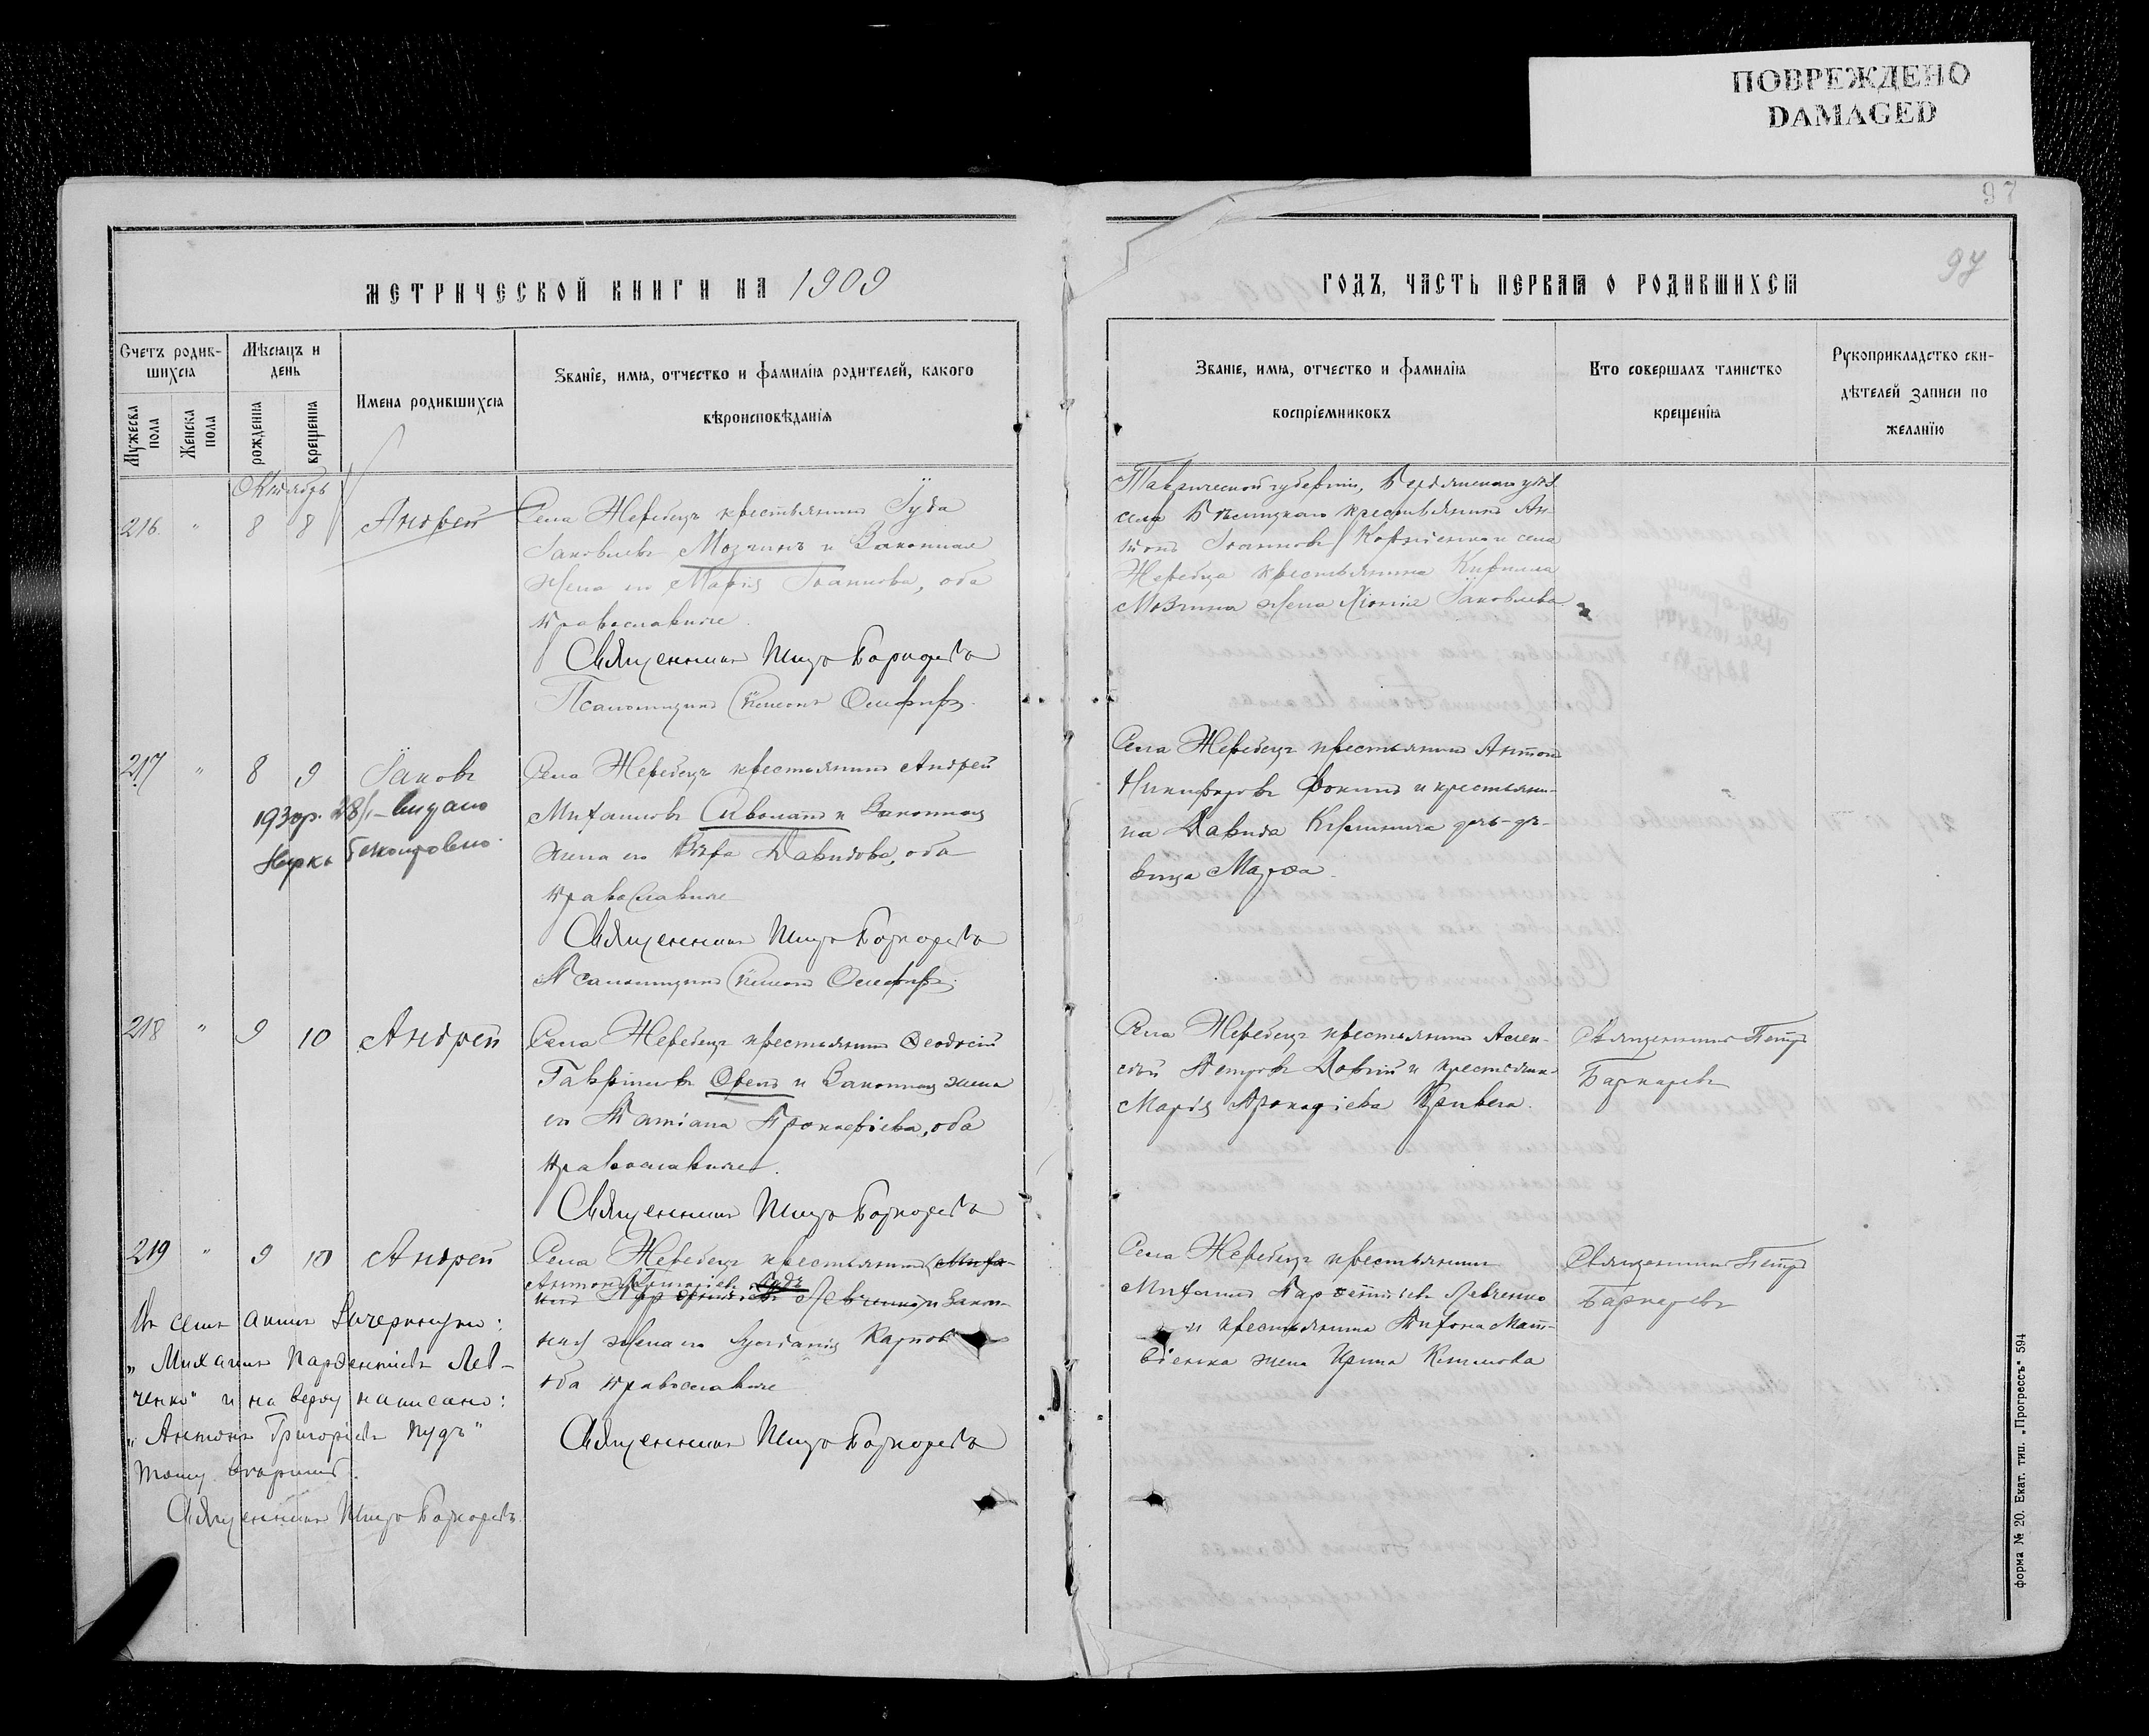 ПОВРЕЖДЕНО
DAMAGED
97
97
МЕТРИЧЕСКОЙ КНИГИ НА 1909
ГОДЪ, ЧАСТЬ ПЕРВАЯ О РОДИВШИХСЯ
Счетъ родив-
шихся
Мужеска
пола
Женска
пола
Мѣсяцъ и
день
рожденія
крещенія
Имена родившихся
Званіе, имя, отчество и фамилія родителей, какого
вѣроисповѣданія
Званіе, имя, отчество и фамилія
воспріемниковъ
Кто совершалъ таинство
крещенія
Рукоприкладство сви-
дѣтелей записи по
желанію
Октябрь
216 " 8 8 Андрей
Села Жеребецъ крестьянинъ Іуда
Іаковлевъ Мозчинъ и законная
жена его Марія Іоаннова, оба
православные
Священникъ Петръ Баркаревъ
Псаломщикъ
Таврической губерніи, Бердянскаго уѣз.
села крестьянинъ Ан-
тонъ Іоанновъ Корніенко и села
Жеребца крестьянина Кирилла
Мозчина жена Іаковлева
217 " 8 9 Іаковъ
28/1 – видано
Села Жеребецъ крестьянинъ Андрей
Михаиловъ Сиволапъ и законная
жена его Вѣра Давидова, оба
православные
Священникъ Петръ Баркаревъ
Псаломщикъ
Села Жеребецъ крестьянинъ Антонъ
Никифоровъ Фокинъ и крестьяни-
на Давида дочь-дѣ-
вица Марѳа
218 " 9 10 Андрей
Села Жеребецъ крестьянинъ Ѳеодосій
Гавріиловъ и законная жена
его Татіана Прокофіева, оба
православные
Священникъ Петръ Баркаревъ
Села Жеребецъ крестьянинъ Алек-
сѣй Петровъ Довгій и крестьянка
Марія
Священникъ Петръ
Баркаревъ
219 " 9 10 Андрей
Села Жеребецъ крестьянинъ Миха-
Антонъ Григоріевъ Пудъ
илъ Парѳеніевъ Левченко и закон-
ная жена его Карпова
оба православные
Священникъ Петръ Баркаревъ
Въ семъ актѣ зачеркнуто:
„Михаилъ Парѳеніевъ Лев-
ченко" и на верху написано:
„Антонъ Григоріевъ Пудъ"
тому вѣрить.
Священникъ Петръ Баркаревъ
Села Жеребецъ крестьянинъ
Михаилъ Парѳеніевъ Левченко
и крестьянина Тифона Мат-
віенка жена Ирина Климова
Священникъ Петръ
Баркаревъ
форма № 20. Екат. тип. „Прогрессъ" 594